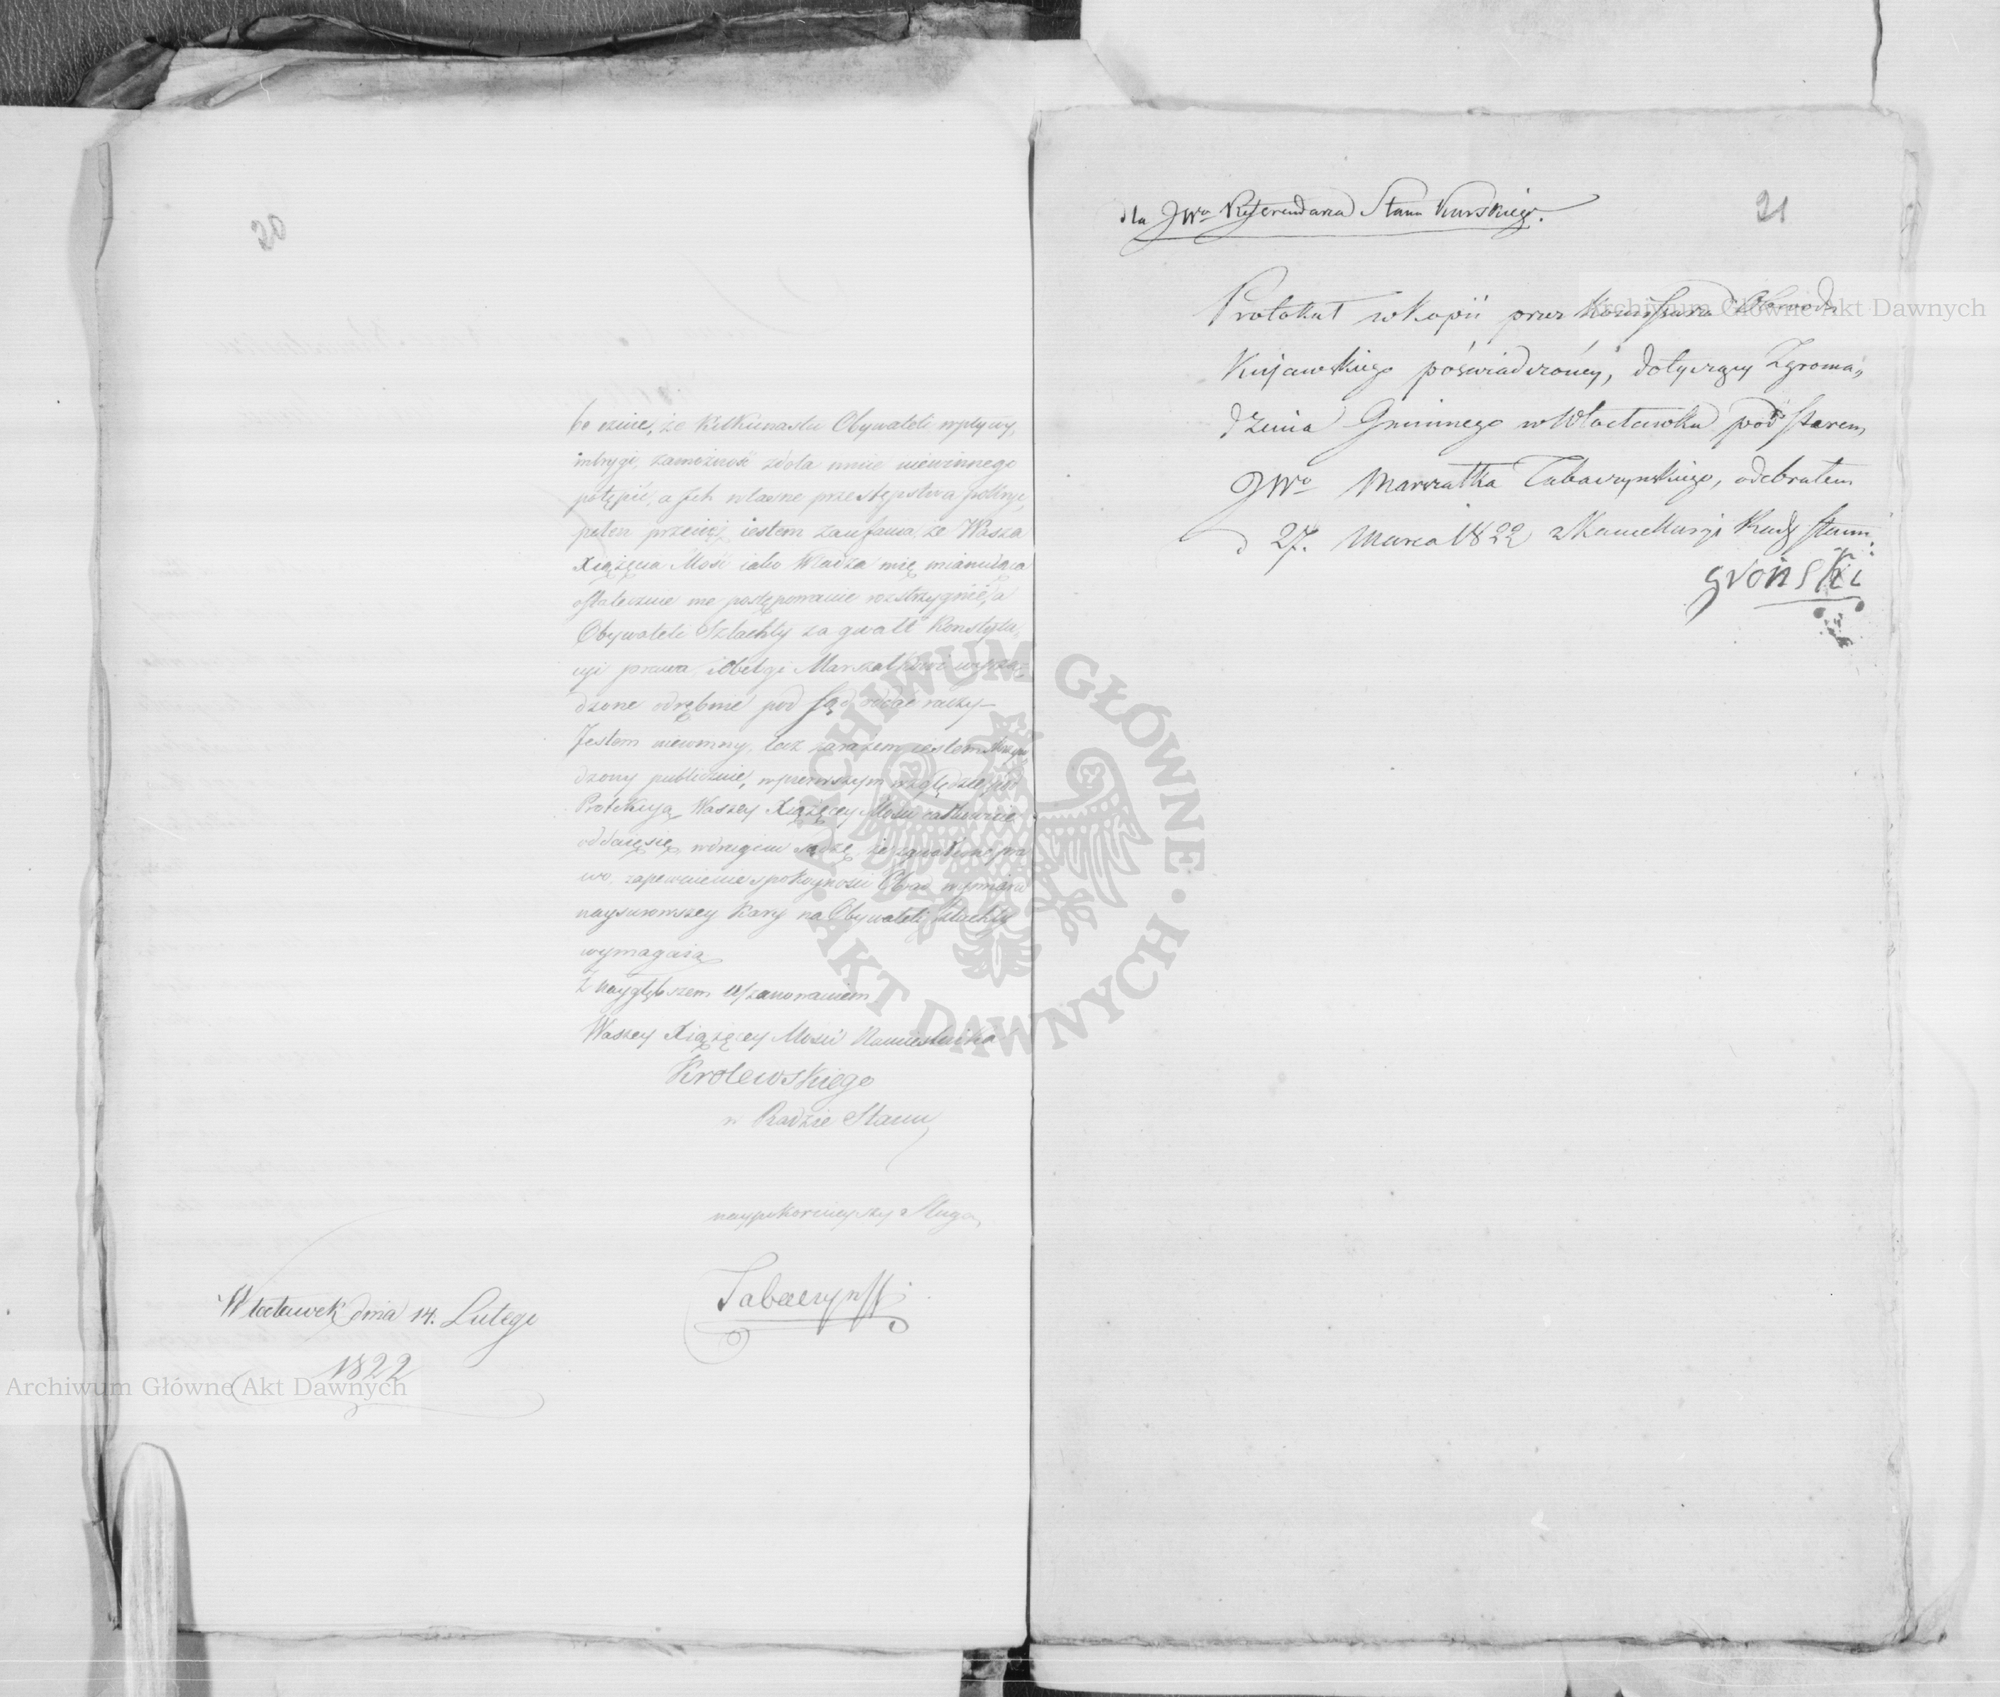 20
że kilkunastu Obywateli wpływy,
intrygi, zamożność zdoła mnie niewinnego
potępić, a Ich własne przestępstwa
pełen iestem zaufania, że Wasza
Xiążęca Mość iako Władza mię mianuiąca
ostatecznie me postępowanie rozstrzygnie, a
Obywateli Szlachty za gwałt Konstytu-
cyi prawa, i Obelgi Marszałkowi wyrzą-
dzone odrębnie pod Sąd oddać raczy –
Jestem niewinny, lecz zarazem iestem
publicznie, w pierwszym względzie pod
Protekcyą Waszey Xiążęcey Mości całkowicie
oddaię się, w drugim sądzę, że zgwałcone pra
wo, zapewnienie spokoyności Obrad wymiaru
naysurowszey Kary na Obywateli Szlachty
wymagaią
Z naygłębszem uszanowaniem
Waszey Xiążęcey Mości Namiestnika
Krolewskiego
w Radzie Stanu
naypokornieyszy Sługa,
Tabaczyński
Włocławek dnia 14. Lutego
1822
21
dla JWo Referendarza Stanu Kurskiego.
Protokuł w Kopii przez Komissarza Obwodu
Kujawskiego poświadczoney, dotyczący Zgroma„
dzenia Gminnego w Włocławku pod
JWo Marszałka Tabaczynskiego, odebrałem
d 27. Marca 1822 z Kancellaryi Rady Stanu.
Archiwum Główne Akt Dawnych
Archiwum Główne Akt Dawnych
ARCHIWUM GŁÓWNE · AKT DAWNYCH ·